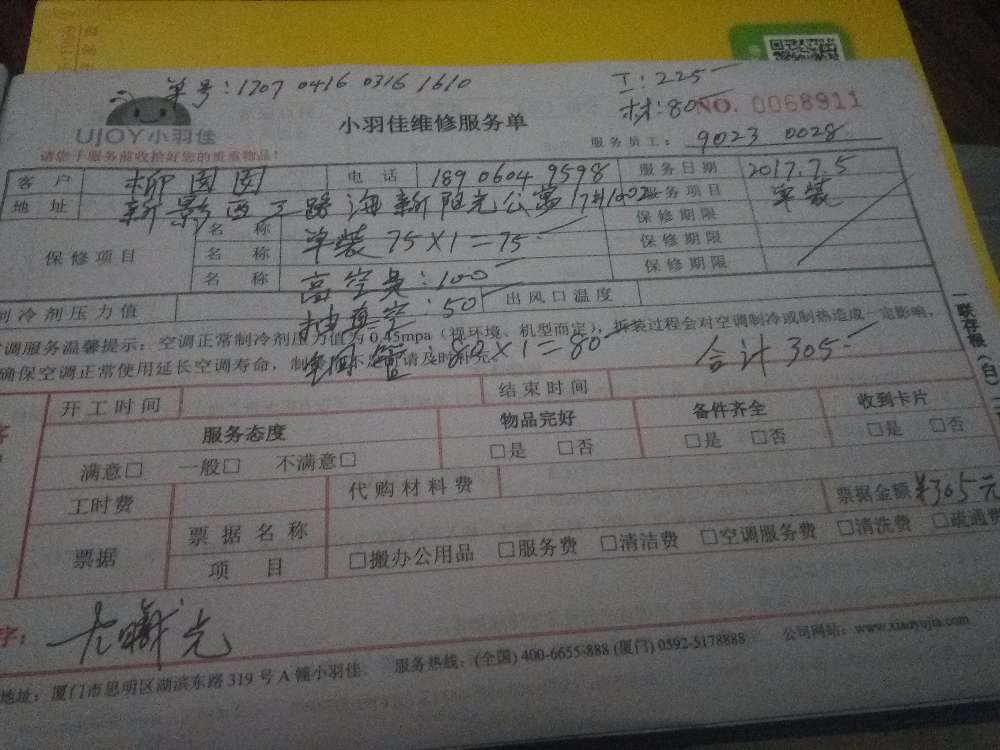 单号:1707 0416 0316 1610
工:225
材:80
NO. 0068911
UJOY小羽佳
小羽佳维修服务单
请您于服务前收拾好您的贵重物品!
服务员工: 9023 0028
客户 柳圆圆 电话 189 0604 9598 服务日期 2017.7.5
地址 新景西三路海新阳光公寓17#1002 服务项目 单装
保修项目 名称 单装 75×1=75 保修期限
名称 高空费:100 保修期限
名称 抽真空:50 保修期限
制冷剂压力值 出风口温度
空调服务温馨提示:空调正常制冷剂压力值为0.45mpa(视环境、机型而定),拆装过程会对空调制冷或制热造成一定影响,
确保空调正常使用延长空调寿命,制 不 请及时补充
管:80×1=80 合计305
一联存根(白)
开工时间 结束时间
服务态度 物品完好 备件齐全 收到卡片
满意□ 一般□ 不满意□ □是 □否 □是 □否 □是 □否
工时费 代购材料费 票据金额 ¥305元
票据 票据名称
项目 □搬办公用品 □服务费 □清洁费 □空调服务费 □清洗费 □疏通费
字:
地址:厦门市思明区湖滨东路319号A幢小羽佳 服务热线:(全国)400-6655-888 (厦门)0592-5178888 公司网站:www.xiaoyujia.com